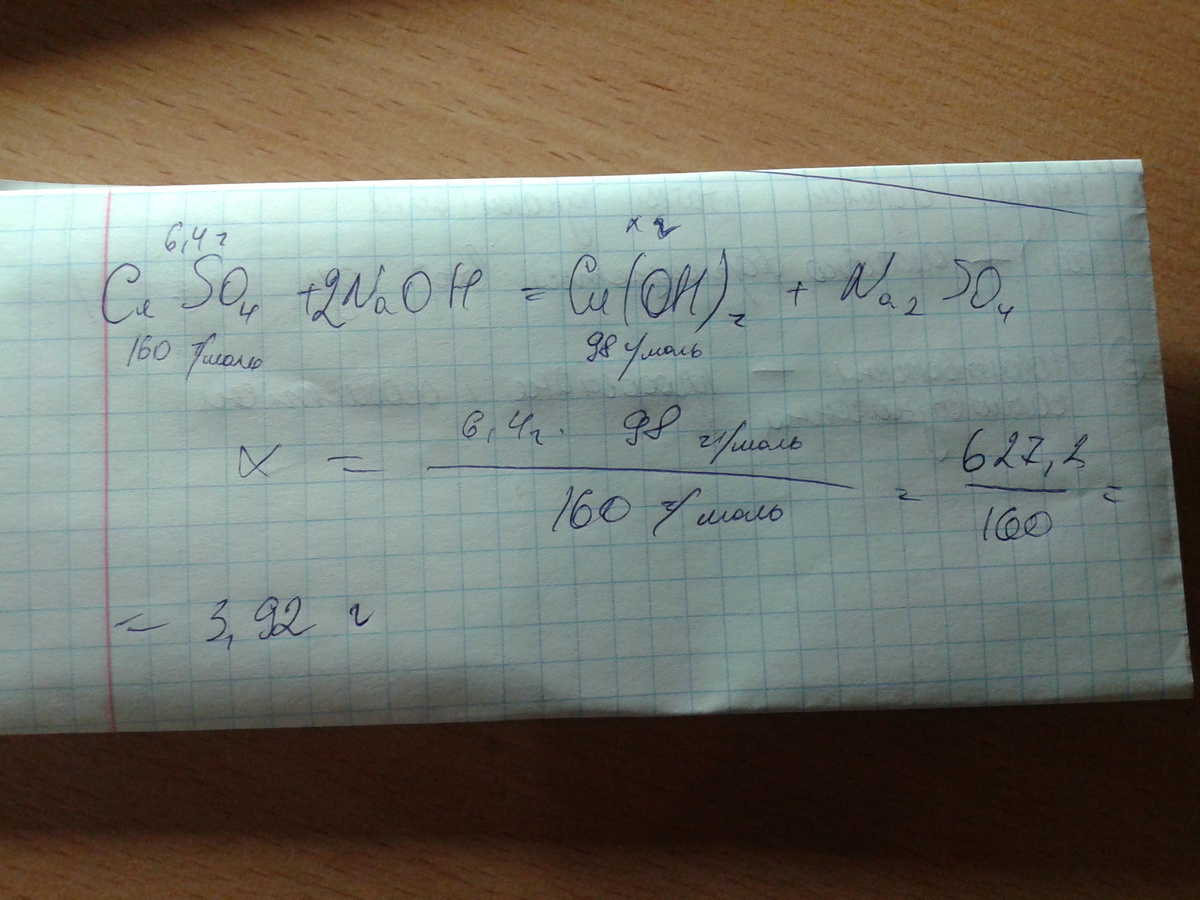 6,4 г х г
CuSO₄ + 2NaOH = Cu(OH)₂ + Na₂SO₄
160 г/моль 98 г/моль
6,4 г · 98 г/моль 627,2
х = ———— = ———— =
160 г/моль 160
= 3,92 г